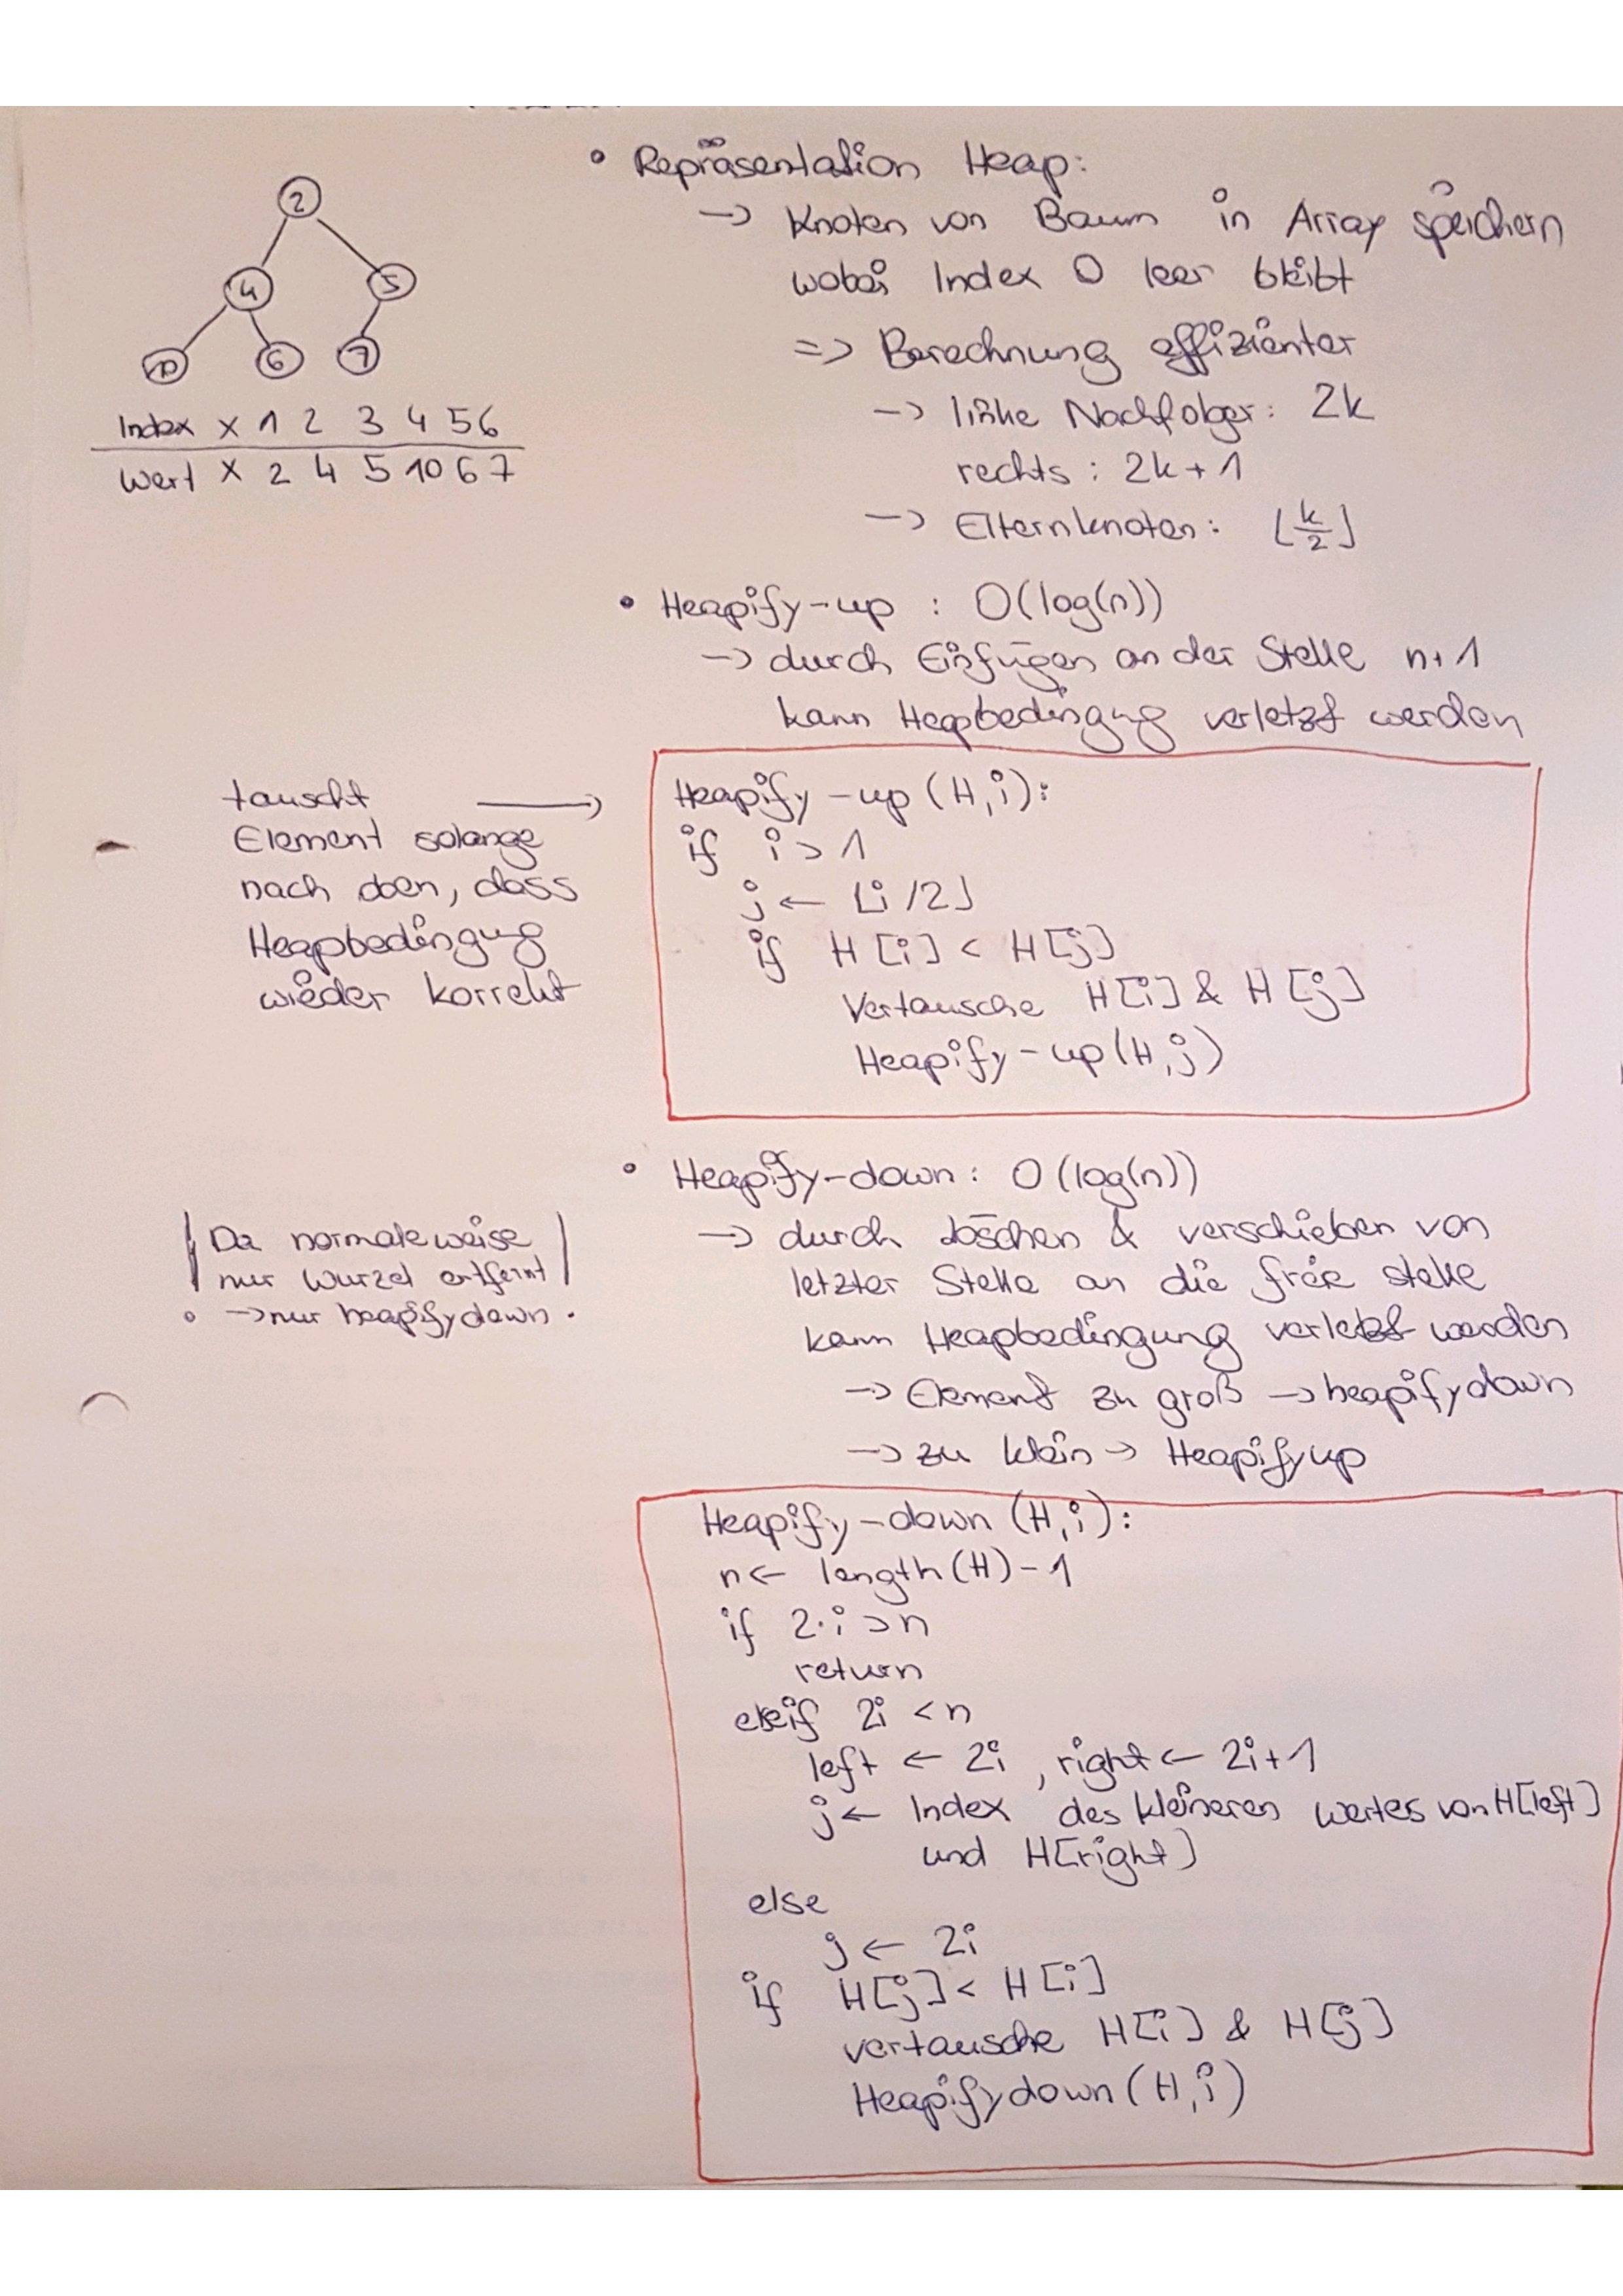 • Repräsentation Heap:
→ Knoten von Baum in Array speichern
wobei Index 0 leer bleibt
=> Berechnung effizienter
→ linke Nachfolger: 2k
rechts: 2k+1
→ Elternknoten: ⌊k/2⌋
2
4 5
10 6 7
Index x 1 2 3 4 5 6
Wert x 2 4 5 10 6 7
• Heapify-up : O(log(n))
→ durch Einfügen an der Stelle n+1
kann Heapbedingung verletzt werden
tauscht →
Element solange
nach oben, dass
Heapbedingung
wieder korrekt
Heapify-up (H,i):
if i > 1
j ← ⌊i/2⌋
if H[i] < H[j]
Vertausche H[i] & H[j]
Heapify-up(H,j)
• Heapify-down: O(log(n))
→ durch Löschen & verschieben von
letzter Stelle an die freie stelle
kann Heapbedingung verletzt werden
→ Element zu groß → heapifydown
→ zu klein → Heapifyup
Da normaleweise
nur Wurzel entfernt
→ nur heapifydown.
Heapify-down (H,i):
n ← length(H)-1
if 2·i > n
return
elseif 2i < n
left ← 2i, right ← 2i+1
j ← Index des kleineren wertes von H[left]
und H[right]
else
j ← 2i
if H[j] < H[i]
vertausche H[i] & H[j]
Heapifydown(H,j)